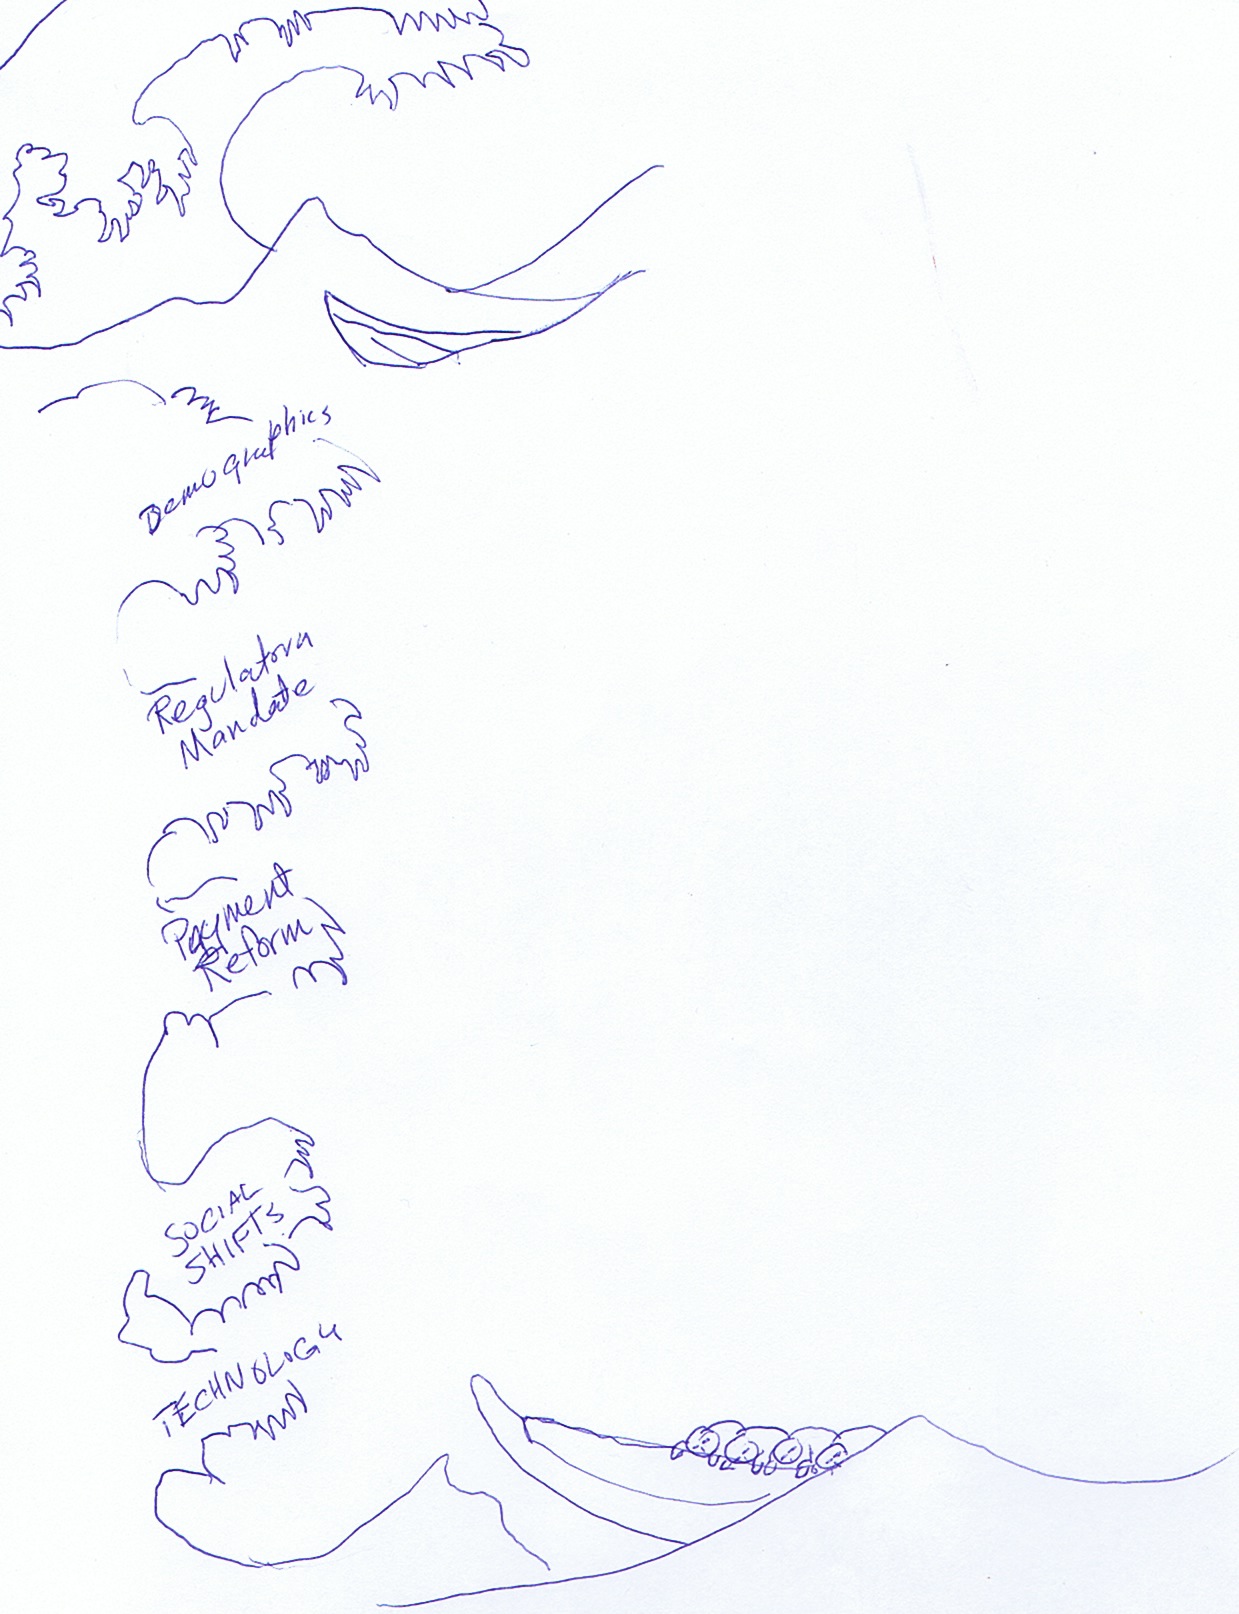 Demographics
Regulatory
Mandate
Payment
Reform
SOCIAL
SHIFTS
TECHNOLOGY